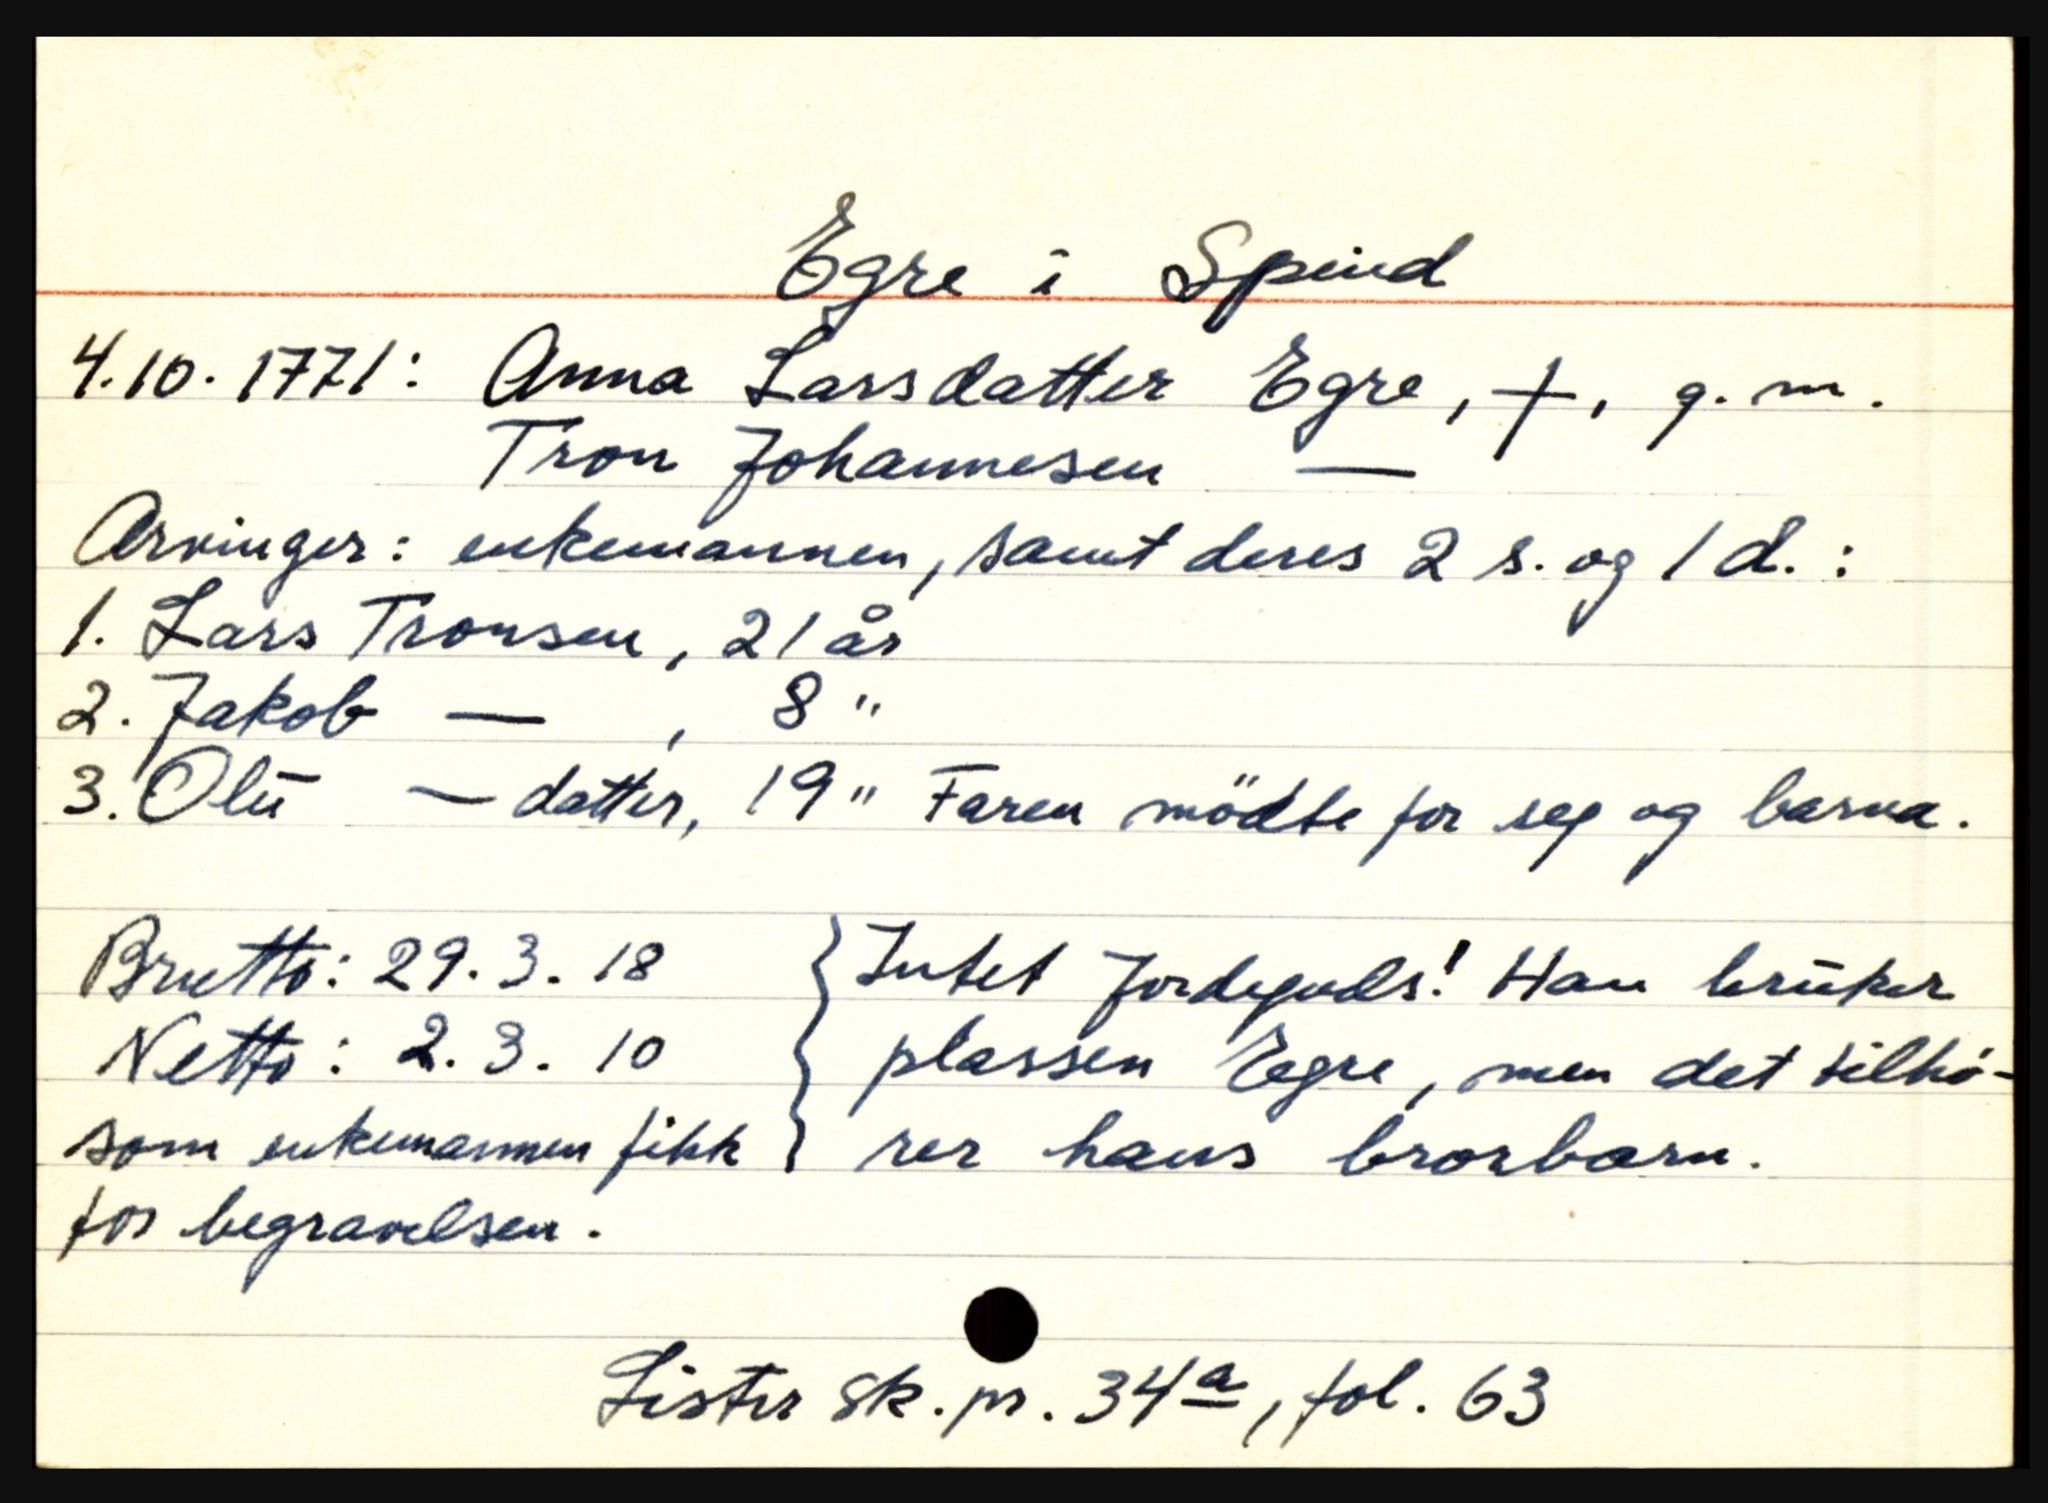 Egre i Spind
4.10.1771: Anna Larsdatter Egre, †, g. m.
Tron Johannesen —
Arvinger: enkemannen, samt deres 2 s. og 1 d. :
1. Lars Tronsen, 21 år
2. Jakob — , 8 "
3. Olū — datter, 19 " Faren mödte for seg og barna.
Brutto: 29. 3. 18 } Intet jordegods! Han brūker
Netto: 2. 3. 10 } plassen Egre, men det tilhö-
som enkemannen fikk } rer hans brorbarn.
for begravelsen.
Lister sk. pr. 34a, fol. 63